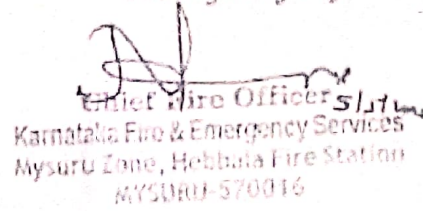 Chief Fire Officer
Karnataka Fire & Emergency Services
Mysuru Zone, Hebbala Fire Station
MYSURU-570016